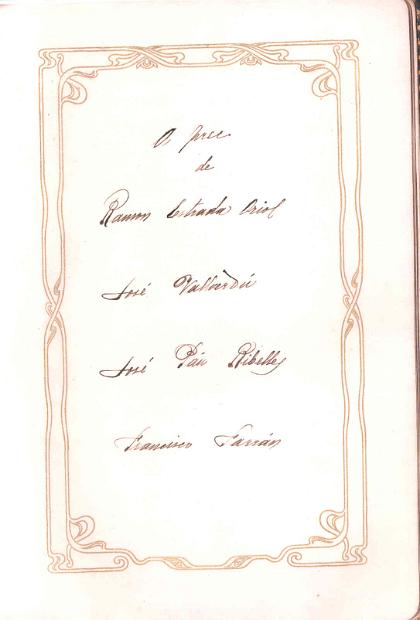 A prec
de
Ramon Estrada Oriol
José Vallverdú
José Páu Ribelles
Francisco Farrán